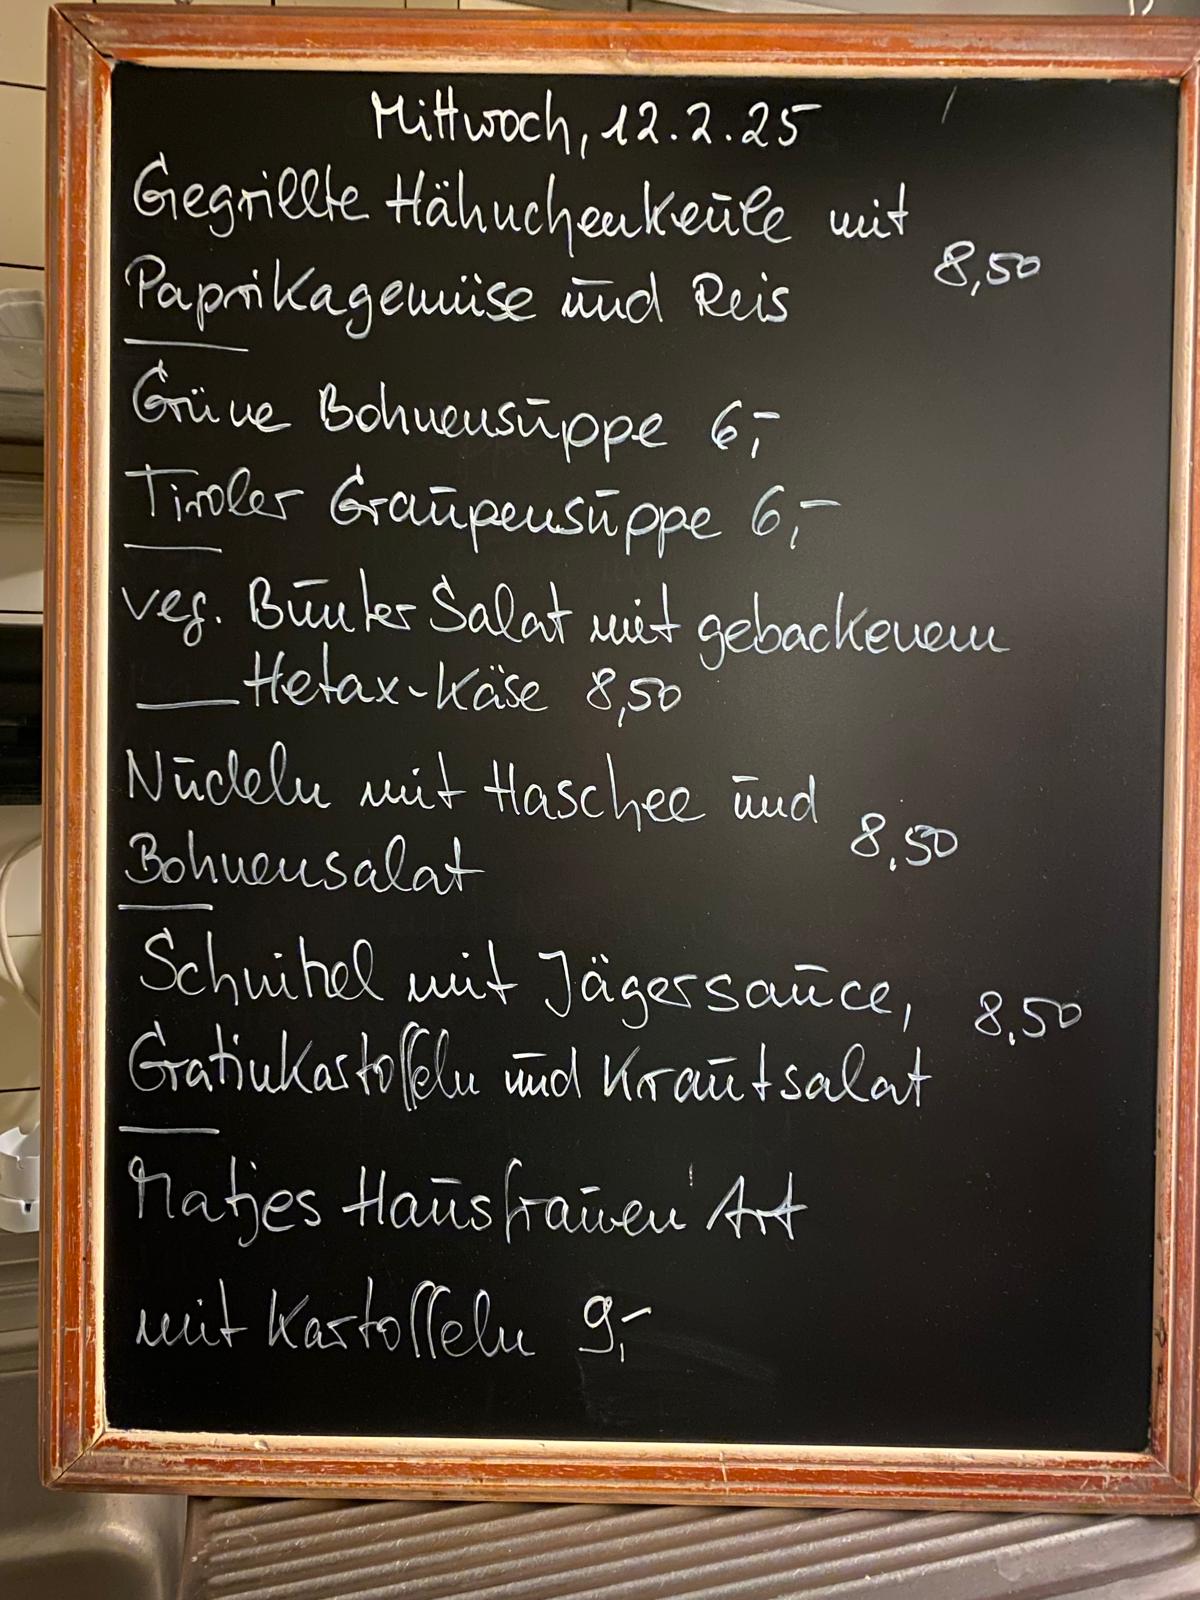 Mittwoch, 12.2.25
Gegrillte Hähnchenkeule mit
Paprikagemüse und Reis 8,50
Grüne Bohnensuppe 6,-
Tiroler Graupensuppe 6,-
veg. Bunter Salat mit gebackenem
Hetax-Käse 8,50
Nudeln mit Haschee und
Bohnensalat 8,50
Schnitzel mit Jägersauce, 8,50
Gratinkartoffeln und Krautsalat
Matjes Hausfrauen Art
mit Kartoffeln 9,-